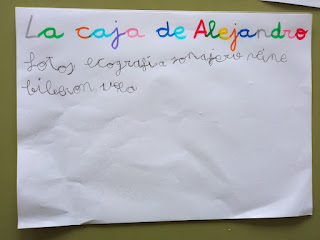 La caja de Alejandro
fotos ecografia sonajero peine
biberon